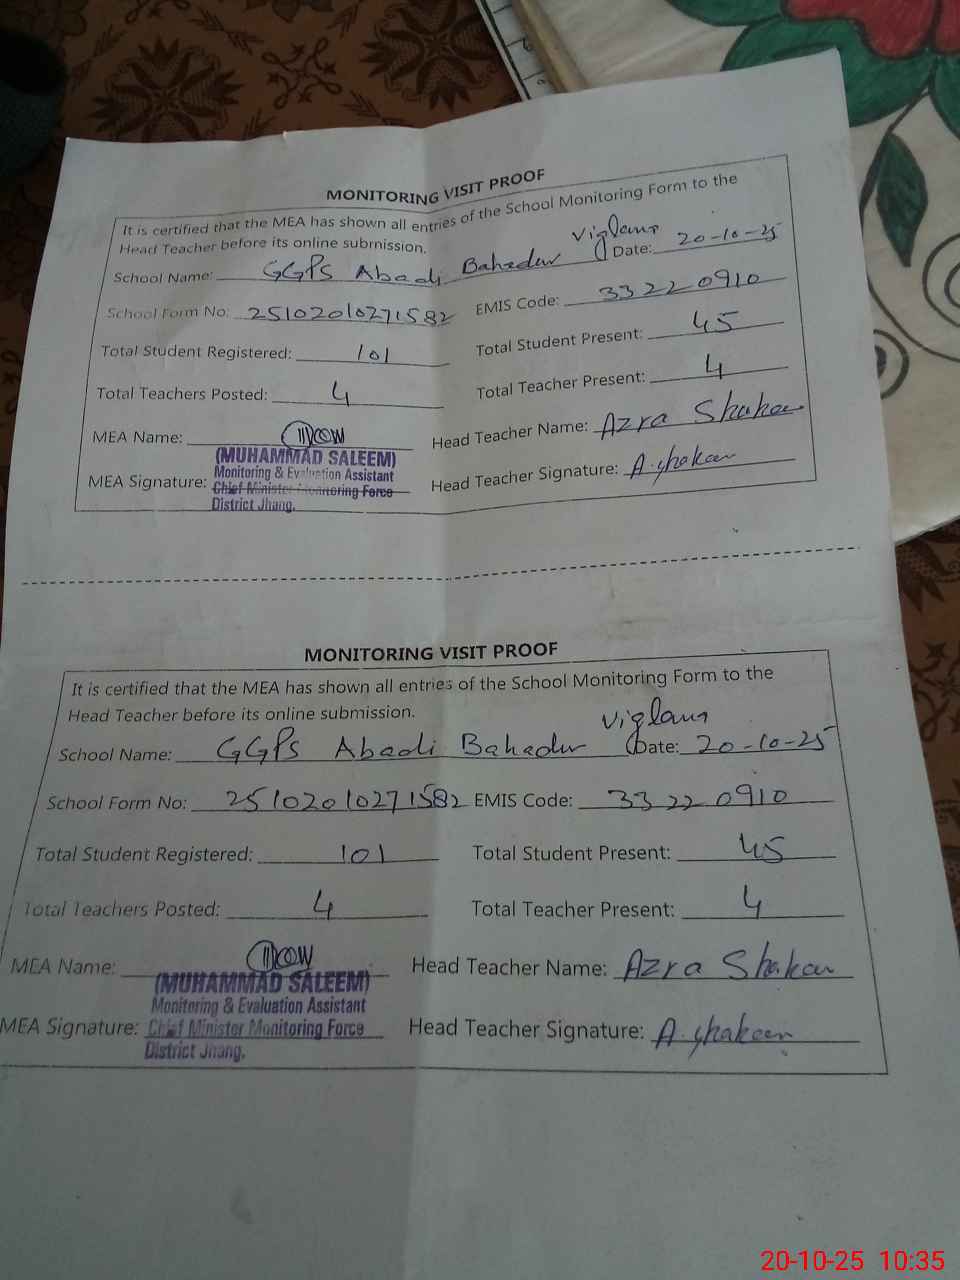 MONITORING VISIT PROOF
It is certified that the MEA has shown all entries of the School Monitoring Form to the
Head Teacher before its online submission.
School Name: GGPS Abadi Bahadur Viglana Date: 20-10-25
School Form No: 25102010271582 EMIS Code: 33220910
Total Student Registered: 101 Total Student Present: 45
Total Teachers Posted: 4 Total Teacher Present: 4
MEA Name: Head Teacher Name: Azra Shakoor
(MUHAMMAD SALEEM)
Monitoring & Evaluation Assistant
MEA Signature: Chief Minister Monitoring Force Head Teacher Signature: A.shakoor
District Jhang.
MONITORING VISIT PROOF
It is certified that the MEA has shown all entries of the School Monitoring Form to the
Head Teacher before its online submission.
School Name: GGPS Abadi Bahadur Viglana Date: 20-10-25
School Form No: 25102010271582 EMIS Code: 33220910
Total Student Registered: 101 Total Student Present: 45
Total Teachers Posted: 4 Total Teacher Present: 4
MEA Name: Head Teacher Name: Azra Shakoor
(MUHAMMAD SALEEM)
Monitoring & Evaluation Assistant
MEA Signature: Chief Minister Monitoring Force Head Teacher Signature: A.shakoor
District Jhang.
20-10-25 10:35